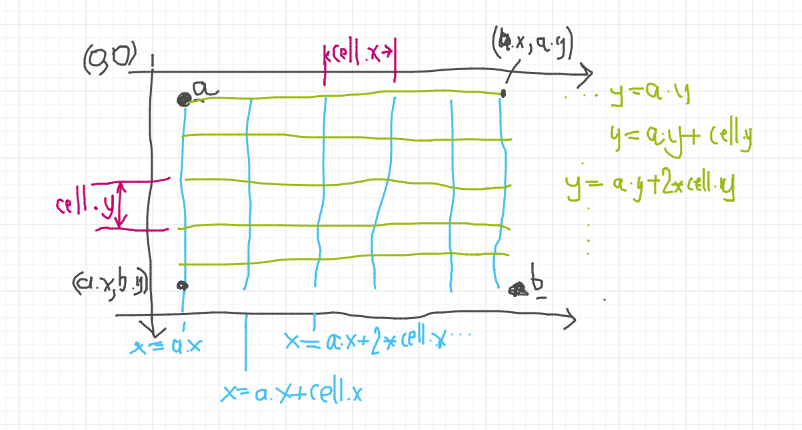 (0,0)
cell.x
(b.x, a.y)
a
... y=a.y
y=a.y+cell.y
cell.y
y=a.y+2*cell.y
(a.x, b.y)
b
x=a.x
x=a.x+2*cell.x...
x=a.x+cell.x